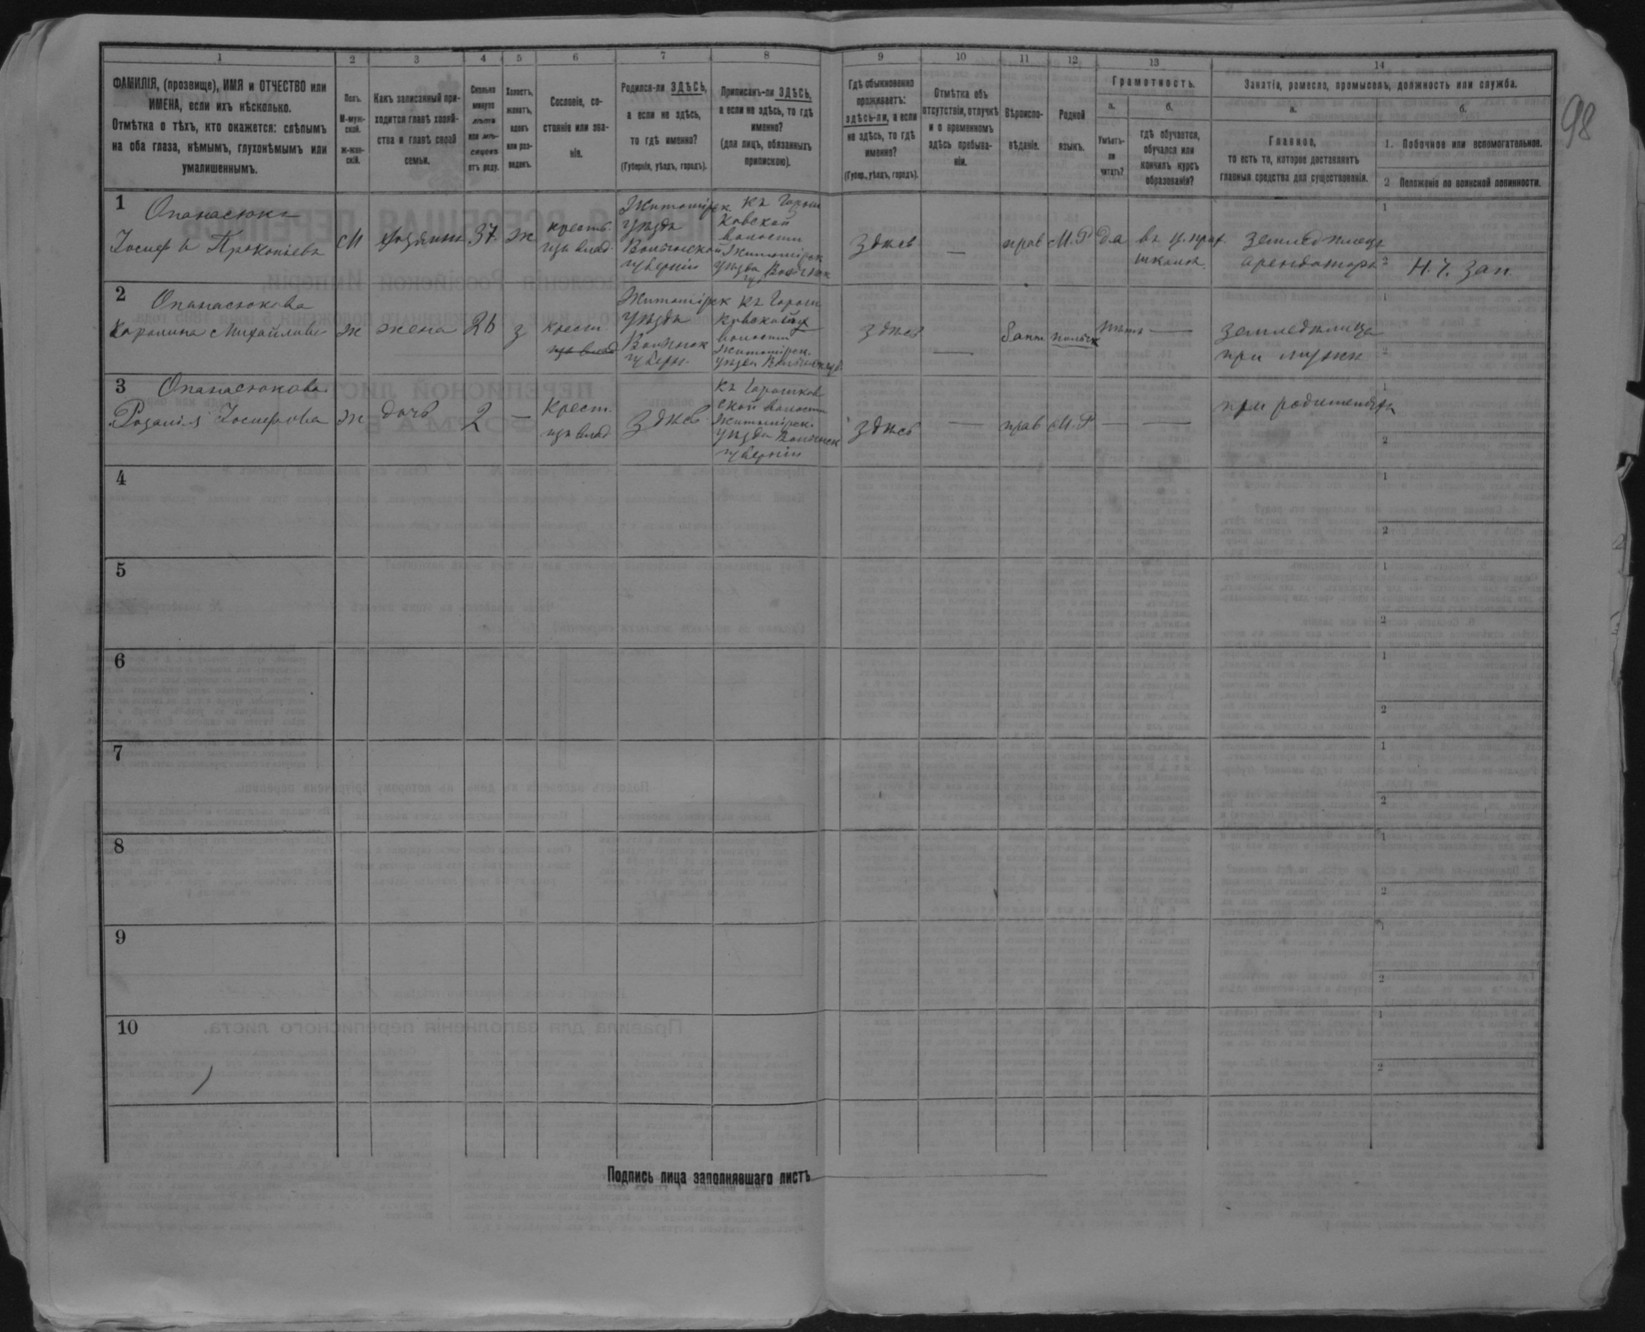 98
1 2 3 4 5 6 7 8 9 10 11 12 13 14
ФАМИЛІЯ, (прозвище), ИМЯ и ОТЧЕСТВО или
ИМЕНА, если ихъ нѣсколько.
Отмѣтка о тѣхъ, кто окажется: слѣпымъ
на оба глаза, нѣмымъ, глухонѣмымъ или
умалишеннымъ.
Полъ.
М-муж-
ской.
Ж-жен-
скій.
Какъ записанный при-
ходится главѣ хозяй-
ства и главѣ своей
семьи.
Сколько
минуло
лѣтъ
или мѣ-
сяцевъ
отъ роду.
Холостъ,
женатъ,
вдовъ
или раз-
веденъ.
Сословіе, со-
стояніе или зва-
ніе.
Родился-ли ЗДѢСЬ,
а если не здѣсь,
то гдѣ именно?
(Губернія, уѣздъ, городъ).
Приписанъ-ли ЗДѢСЬ,
а если не здѣсь, то гдѣ
именно?
(для лицъ, обязанныхъ
припискою).
Гдѣ обыкновенно
проживаетъ:
здѣсь-ли, а если
не здѣсь, то гдѣ
именно?
(Губер., уѣздъ, городъ).
Отмѣтка объ
отсутствіи, отлучкѣ
и о временномъ
здѣсь пребыва-
ніи.
Вѣроиспо-
вѣданіе.
Родной
языкъ.
Грамотность.
а.
Умѣетъ-
ли
читать?
б.
гдѣ обучается,
обучался или
кончилъ курсъ
образованія?
Занятіе, ремесло, промыселъ, должность или служба.
а.
Главное,
то есть то, которое доставляетъ
главныя средства для существованія.
б.
1. Побочное или вспомогательное.
2 Положеніе по воинской повинности.
1
Опанасюкъ
Іосифъ Прокопіевъ
М
хозяинъ
37
ж
крестъ
изъ влад.
Житомірск
уѣзда
Волынской
губерніи
къ Горош
ковской
волости
Житомірск
уѣзда Волынск
здѣсь
—
прав
М.Р
да
въ ц. прих
школѣ
земледѣлецъ
арендаторъ
1
2 Н. ч. зап
2
Опанасюкова
Каролина Михайлова
ж
жена
26
з
крест
изъ влад
Житомірск
уѣзда
Волынск
губерн.
къ Горош
ковской
волости
Житомірск.
уѣзда Волынск губ
здѣсь
—
польск
нѣтъ
—
земледѣлица
при мужѣ
1
2
3
Опанасюкова
Розалія Іосифова
ж
дочь
2
—
крест.
изъ влад
здѣсь
къ Горошков
ской волости
Житомірск.
уѣзда Волынск
губерніи
здѣсь
—
прав
М.Р
—
—
при родителяхъ
1
2
4
1
2
5
1
2
6
1
2
7
1
2
8
1
2
9
1
2
10
1
2
Подпись лица заполнявшаго листъ